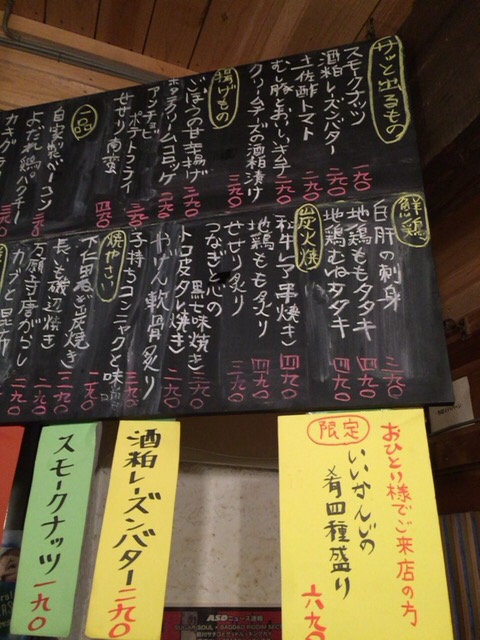 サッと出るもの
スモークナッツ 一九〇
酒粕レーズンバター 二九〇
土佐酢トマト 二九〇
むし豚とおいしいキムチ 二九〇
クリームチーズの酒粕漬け 三九〇
揚げもの
ごぼうの甘辛揚げ 二九〇
ホタテクリームコロッケ
アンチョビポテトフライ
せせり南蛮 四九〇
一品
自家製ベーコン
よだれ鶏。パクチー
鮮鶏
白肝の刺身 三九〇
地鶏ももタタキ 四九〇
地鶏むねタタキ 四九〇
炭火焼
和牛レア串焼き 四九〇
地鶏もも炙り 四九〇
せせり炙り 三九〇
つなぎと心の黒七味焼き 三九〇
トロ皮タレ焼き 二九〇
やげん軟骨炙り 二九〇
子持ちコンニャクと味噌 三九〇
焼やさい
下仁田ねぎ炭焼き
長いも磯辺焼き 二九〇
万願寺唐がらし 二九〇
カブと昆布 二九〇
おひとり様でご来店の方
限定
いいかんじの
肴四種盛り
六九〇
酒粕レーズンバター 二九〇
スモークナッツ 一九〇
ASD ニュース速報